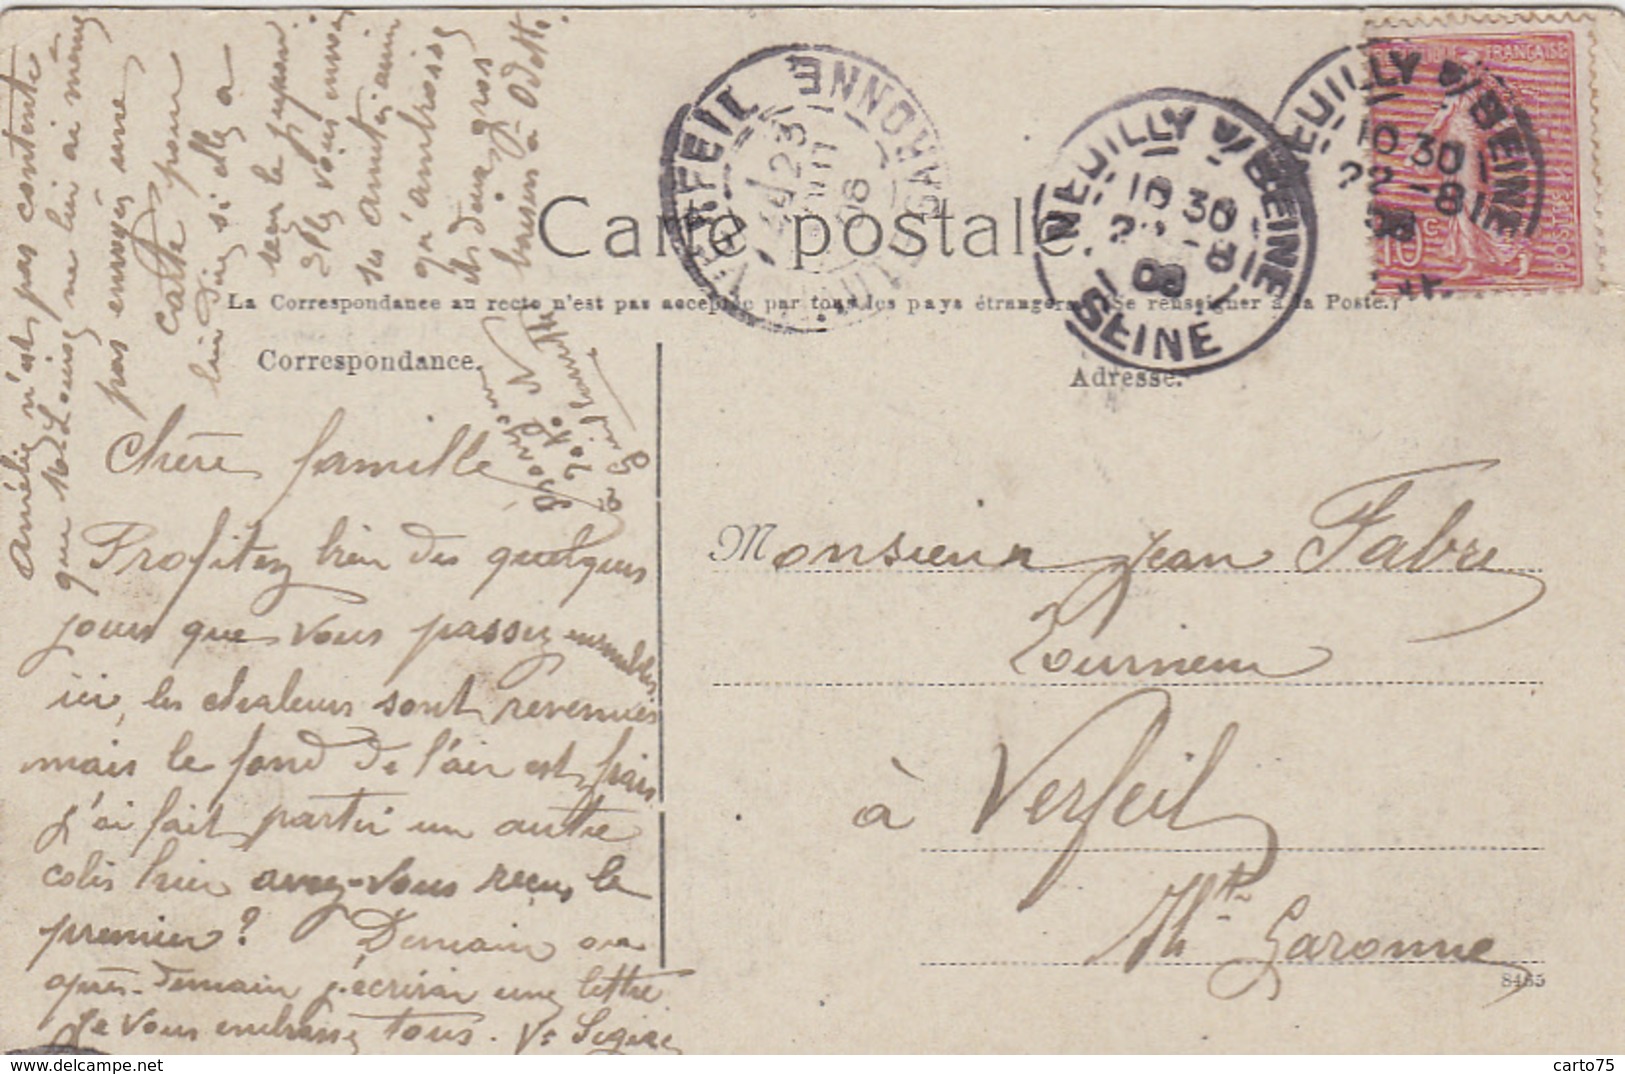 Carte postale
La Correspondance au recto n'est pas acceptée par tous les pays étrangers (Se renseigner à la Poste.)
Correspondance.
Adresse.
REPUBLIQUE FRANÇAISE
POSTE
10c
NEUILLY S/SEINE
10 30
22 -8
08
NEUILLY S/SEINE
10 30
22 -8
08
SEINE
VERFEIL
23
08
GARONNE
Chère famille
Profitez bien des quelques
jours que vous passez ensembles
ici, les chaleurs sont revenues
mais le fond de l'air est frais
j'ai fait partir un autre
colis hier avez-vous reçus le
premier? Demain ou
après-demain j'écrirai une lettre
Je vous embrasse tous. Ve
Amélie n'est pas contente
que Mel Louise ne lui ai même
pas envoyés une
carte pour
lui dire si elle a
reçu le jupon
Elle vous envoi
ses amitiés ainsi
qu'ambrosse
les deux gros
bisous à Odette.
Monsieur Jean Fabre
Tourneur
à Verfeil
Hte Garonne
8465
carto75